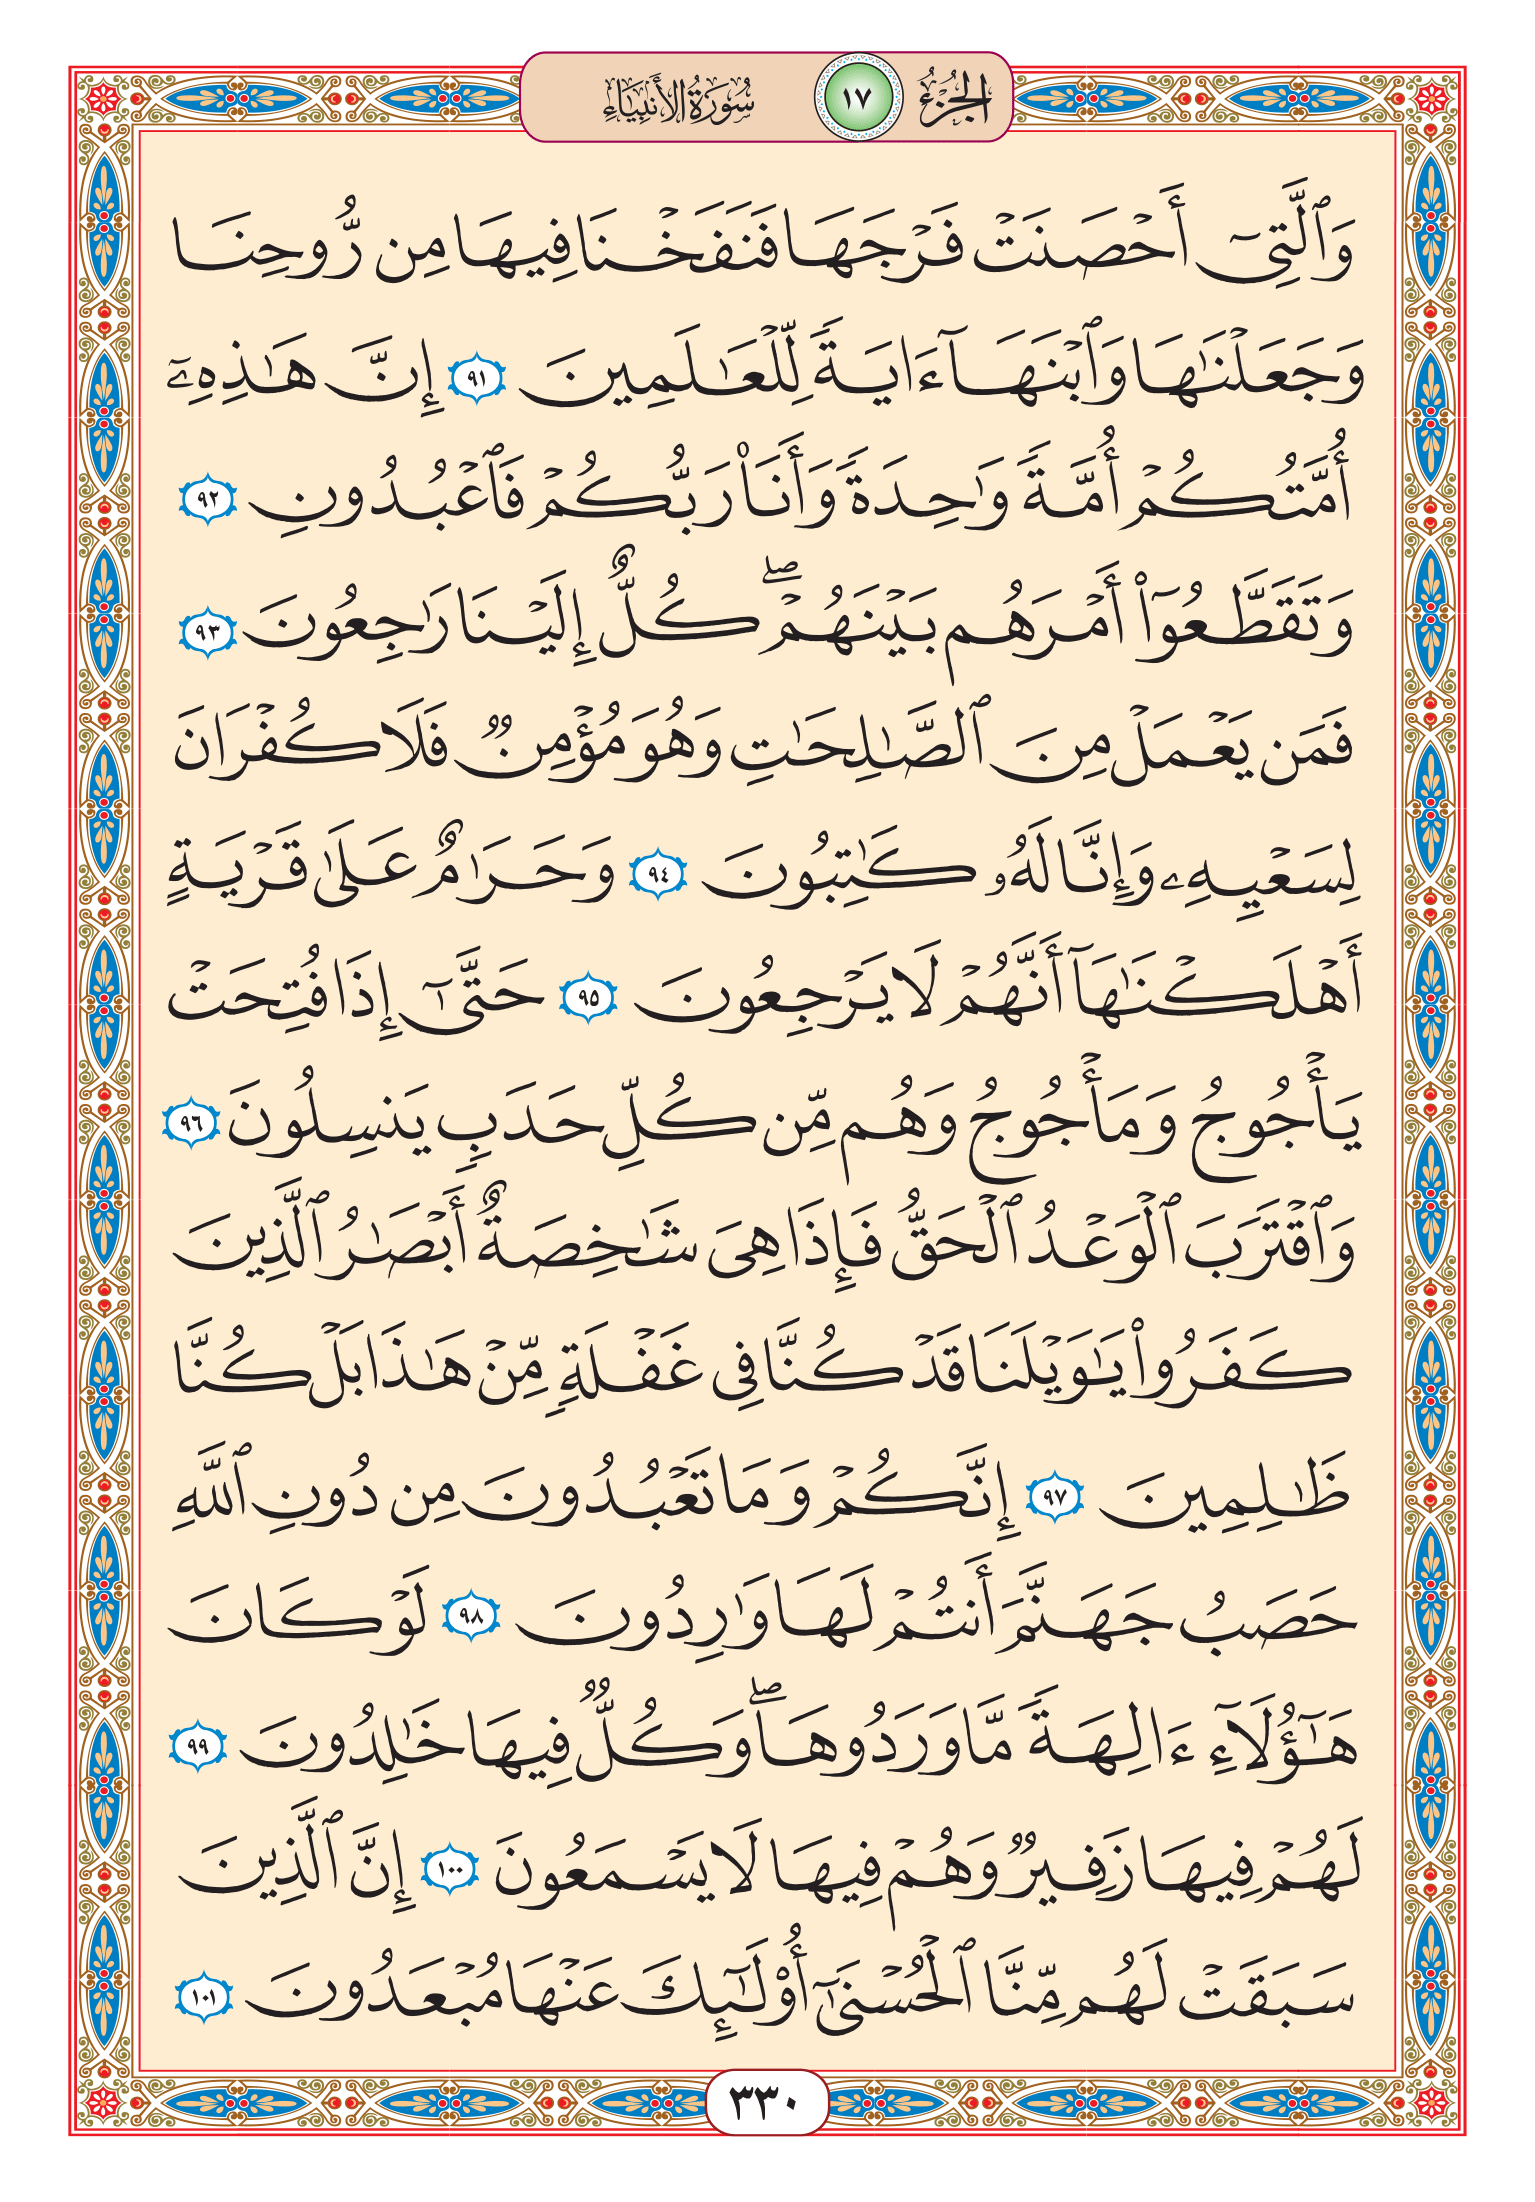 الجزء ١٧ سورة الأنبياء
وَٱلَّتِىٓ أَحْصَنَتْ فَرْجَهَا فَنَفَخْنَا فِيهَا مِن رُّوحِنَا
وَجَعَلْنَٰهَا وَٱبْنَهَآ ءَايَةً لِّلْعَٰلَمِينَ ٩١ إِنَّ هَٰذِهِۦٓ
أُمَّتُكُمْ أُمَّةً وَٰحِدَةً وَأَنَا۠ رَبُّكُمْ فَٱعْبُدُونِ ٩٢
وَتَقَطَّعُوٓا۟ أَمْرَهُم بَيْنَهُمْ ۖ كُلٌّ إِلَيْنَا رَٰجِعُونَ ٩٣
فَمَن يَعْمَلْ مِنَ ٱلصَّٰلِحَٰتِ وَهُوَ مُؤْمِنٌ فَلَا كُفْرَانَ
لِسَعْيِهِۦ وَإِنَّا لَهُۥ كَٰتِبُونَ ٩٤ وَحَرَٰمٌ عَلَىٰ قَرْيَةٍ
أَهْلَكْنَٰهَآ أَنَّهُمْ لَا يَرْجِعُونَ ٩٥ حَتَّىٰٓ إِذَا فُتِحَتْ
يَأْجُوجُ وَمَأْجُوجُ وَهُم مِّن كُلِّ حَدَبٍ يَنسِلُونَ ٩٦
وَٱقْتَرَبَ ٱلْوَعْدُ ٱلْحَقُّ فَإِذَا هِىَ شَٰخِصَةٌ أَبْصَٰرُ ٱلَّذِينَ
كَفَرُوا۟ يَٰوَيْلَنَا قَدْ كُنَّا فِى غَفْلَةٍ مِّنْ هَٰذَا بَلْ كُنَّا
ظَٰلِمِينَ ٩٧ إِنَّكُمْ وَمَا تَعْبُدُونَ مِن دُونِ ٱللَّهِ
حَصَبُ جَهَنَّمَ أَنتُمْ لَهَا وَٰرِدُونَ ٩٨ لَوْ كَانَ
هَٰٓؤُلَآءِ ءَالِهَةً مَّا وَرَدُوهَا ۖ وَكُلٌّ فِيهَا خَٰلِدُونَ ٩٩
لَهُمْ فِيهَا زَفِيرٌ وَهُمْ فِيهَا لَا يَسْمَعُونَ ١٠٠ إِنَّ ٱلَّذِينَ
سَبَقَتْ لَهُم مِّنَّا ٱلْحُسْنَىٰٓ أُو۟لَٰٓئِكَ عَنْهَا مُبْعَدُونَ ١٠١
٣٣٠